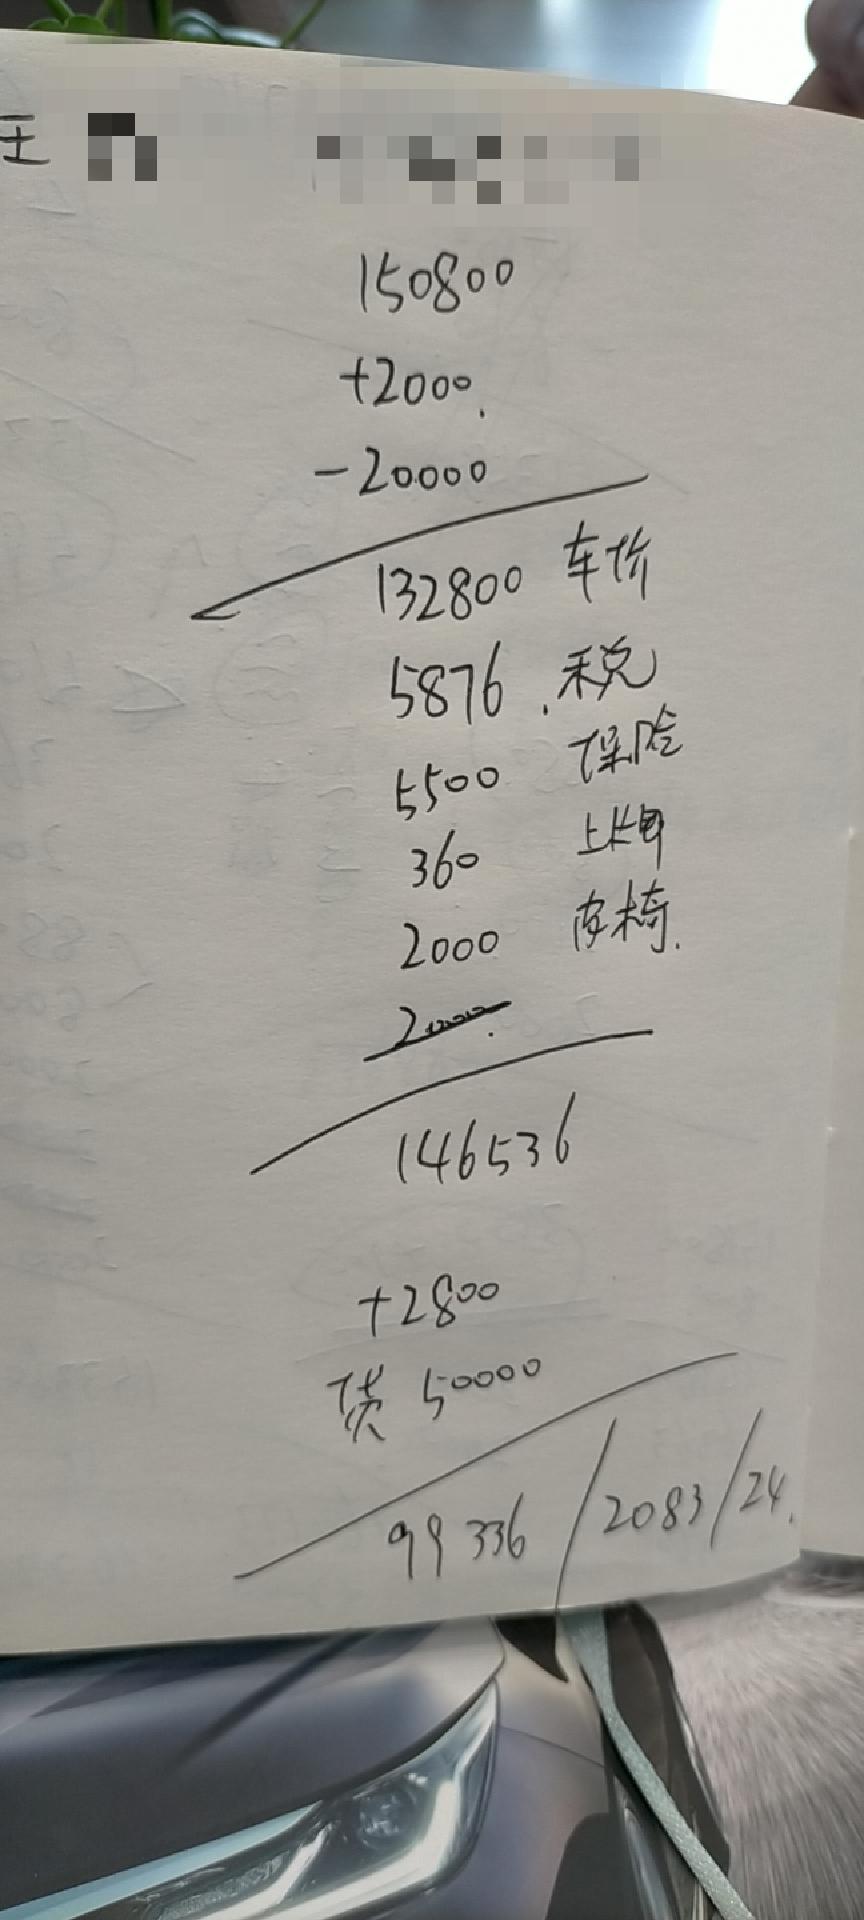 王
150800
+2000.
-20000
132800 车价
5876.税
5500 保险
360 上牌
2000 皮椅.
146536
+2800
贷 50000
99336/2083/24.